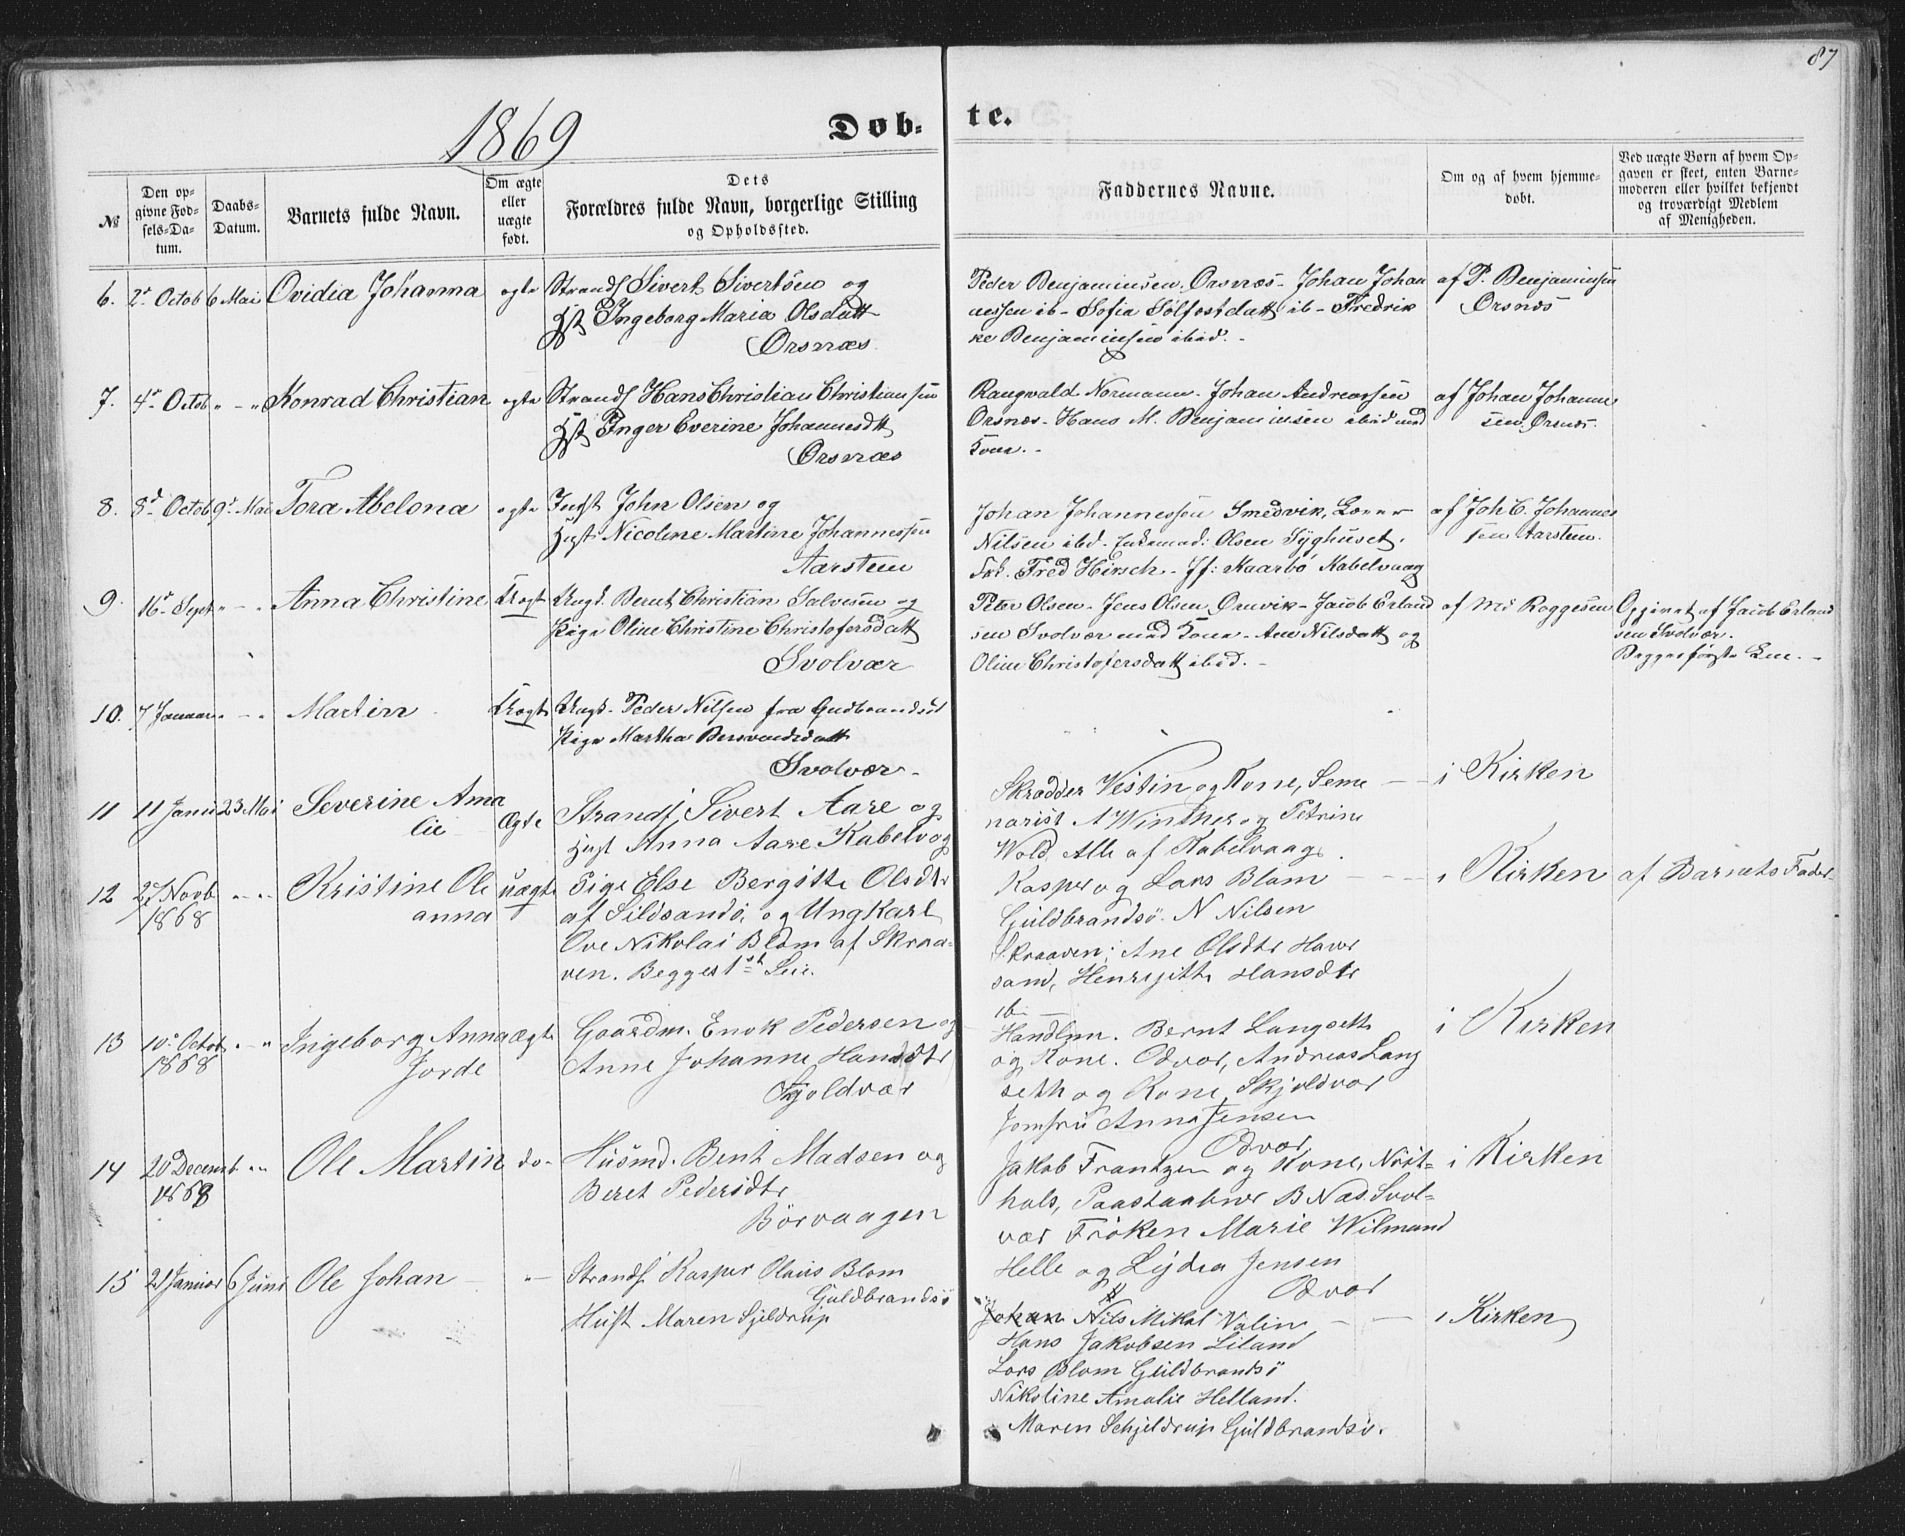 87
1869
Døb-
te.
№
Den opgivne Fødsels-Datum.
Daabs-Datum.
Barnets fulde Navn.
Om ægte eller uægte født.
Dets Forældres fulde Navn, borgerlige Stilling og Opholdssted.
Faddernes Navne.
Om og af hvem hjemmedøbt.
Ved uægte Børn af hvem Opgaven er skeet, enten Barnemoderen eller hvilket bekjendt og troværdigt Medlem af Menigheden.
6. 2d Octob 6 Mai Ovidia Johanna ægte
Strands Sivert Sivertsen og
Hst Ingeborg Maria Olsdatt
Orsnæs
Peder Benjaminsen Orsnæs- Johan Johan
nessen ib- Sofia Solfestdatt ib- Fredrik
ke Benjaminsen ibid.-
af P. Benjaminsen
Orsnæs
7. 4d Octob " - " Konrad Christian ægte
Strands Hans Christian Christiansen
Hst Inger Everine Johannesdtt
Orsnæs
Rangvald Normann- Johan Andreassen
Orsnæs- Hans M. Benjaminsen ibid med
Kone.-
af Johan Johanne
sen Orsnæs-
8. 8d Octob 9d Mai Tora Abelona ægte
Indst John Olsen og
Hust Nicoline Martine Johannessen
Aarsteen
Johan Johannessen Smedvik,
Nilsen ibd- Olsen Syghuset.
Fred Hirsch- Kaarbø Kabelvaag
af Joh C. Johannes
sen Aarsteen.
9. 16d Sept " - " Anna Christine Uægt
Ungk. Bernt Christian Salvesen og
Pige Oline Christine Christofersdatt
Svolvær
Peter Olsen- Jens Olsen Ørnvik- Jacob Erland
sen Svolvær med Kone- Ane Nilsdatt og
Oline Christofersdatt ibid.-
af Md Roggesen
Opgivet af Jacob Erland
sen Svolvær.
Begges første Leie.-
10. 7 Januar " - " Martin Uægte
Ungk- Peder Nilsen fra Gudbrandsd
Pige Martha
Svolvær-
11 11 Janu 23 Mai Severine Ama
lie Ægte
Strands Sivert Aare og
Hust Anna Aare Kabelvog
Skrædder Vestin og Kone, Seme
narist A Winther og Petrine
Wold, Alle af Kabelvaag.
- i Kirken
12 27 Novb
1868 " - " Kristine Ole
anna uægte
Pige Else Bergitte Olsdtr
af Sildsandø, og Ungkarl
Ove Nikolai Blom af Skraa-
ven. Begges 1st Leie.
Kasper og Lars Blom
Guldbrandsø- N Nilsen
Skraaven; Ane Olsdtr
sand, Henrijette Hansdtr
ib-
i Kirken
af Barnets Fader
13 10d Octob
1868 " - " Ingeborg Anna
Jorde ægte
Gaardm. Enok Pedersen og
Anne Johanne Hansdtr
Skjoldvær
Handlsm. Bernt Langseth
og Kone. Odvær, Andreas Lang
seth og Kone, Skjoldvær
Jomfru Anna Jensen
Odvær
i Kirken
14 20 Decemb
1868 " - " Ole Martin do-
Husmd. Bent Madsen og
Beret Pedersdtr
Börvaagen
Jakob Frantzen og Kone,
hals, B Næs. Svol-
vær Frøken Marie Wilmand
Helle og Lydia Jensen
Odvær
i Kirken
15 21 Januar 6 Juni Ole Johan - " -
Strands. Kasper Olaus Blom
Guldbrandsø
Hust Maren Sjeldrup
Johan Nils Mikal Valin
Hans Jakobsen Liland
Lars Blom Guldbrandsö
Nikoline Amalie Helland.
Maren Schjeldrup Guldbrandsø.
i Kirken